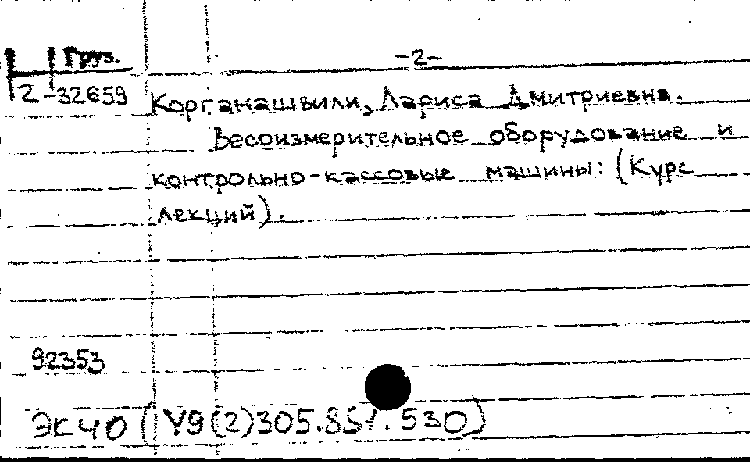 Груз. -2-
2-32659 Корганашвили, Лариса Дмитриевна.
Весоизмерительное оборудование и
контрольно-кассовые машины: (Курс
лекций).
92353
ЭК ЧО (У9(2)305.857.530)